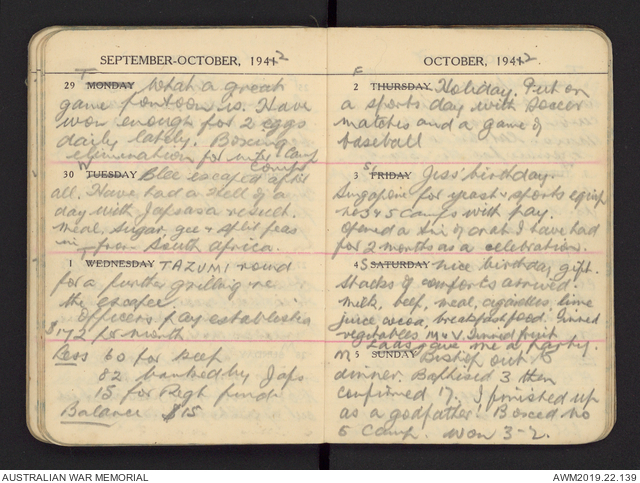 SEPTEMBER-OCTOBER, 1942
T
29 MONDAY What a great
game pontoon is. Have
won enough for 2 eggs
daily lately. Boxing
elimination for inter Camp
Comps
W
30 TUESDAY Blee escaped after
all. Have had a Hell of a
day with Japs as a result.
Meal, sugar, gee & split peas
in from South Africa.
T
1 WEDNESDAY TAZUMI round
for a further grilling re
the escapee.
Officers pay established
$172 per month
Less 60 for keep
82 banked by Japs
15 for Regt fund
Balance $15
OCTOBER, 1942
F
2 THURSDAY Holiday. Put on
a sports day with soccer
matches and a game of
baseball
S
3 FRIDAY Jess' birthday.
Singapore for yeast & sports equip
no 3 & 5 Camps with pay.
Opened a tin of I have had
for 2 months as a celebration.
S
4 SATURDAY nice birthday gift.
Stacks of comforts arrived.
Milk, beef, meal, cigarettes, lime
juice, cocoa, breakfast food. Tinned
vegetables M & V. Tinned fruit
Lads gave me a party.
M
5 SUNDAY Bishop out to
dinner. Baptised 3 then
confirmed 17. I finished up
as a godfather! Boxed no
5 Camp. Won 3-2.
AUSTRALIAN WAR MEMORIAL
AWM2019.22.139